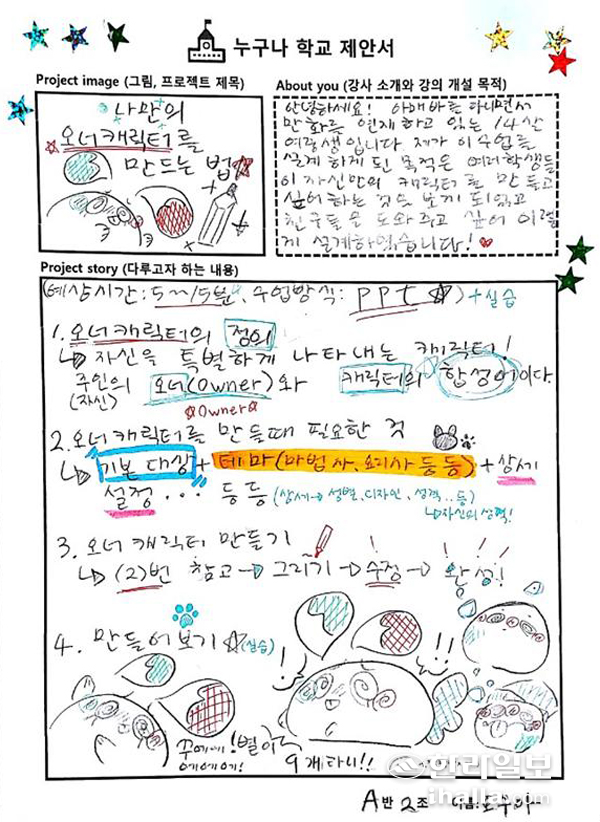 누구나 학교 제안서
Project image (그림, 프로젝트 제목)
나만의
오너캐릭터를
만드는 법
About you (강사 소개와 강의 개설 목적)
안녕하세요! 다니면서
만화를 연재하고 있는 14살
여학생입니다 제가 이 수업을
설계하게 된 목적은 여러 학생들
이 자신만의 캐릭터를 만들고
싶어하는 것을 보게 되었고
친구들을 도와주고 싶어 이렇
게 설계하였습니다!
Project story (다루고자 하는 내용)
(예상시간: 5~15분, 수업방식: ppt ☆) + 실습
1. 오너 캐릭터의 정의
↳ 자신을 특별하게 나타내는 캐릭터!
주인의 오너(Owner)와 캐릭터의 합성어이다.
(자신)
☆Owner☆
2. 오너 캐릭터를 만들때 필요한 것
↳ 기본 대상 + 테마(마법사, 요리사 등등) + 상세
설정 ... 등등 (상세→성별, 디자인, 성격..등)
↳자신의 성격!
3. 오너 캐릭터 만들기
↳ (2)번 참고 → 그리기 → 수정 → 완성!
4. 만들어보기 ☆(실습)
꾸에에!
에에에!
별이
9개라니!!
A반 2조
한라일보
ihalla.com